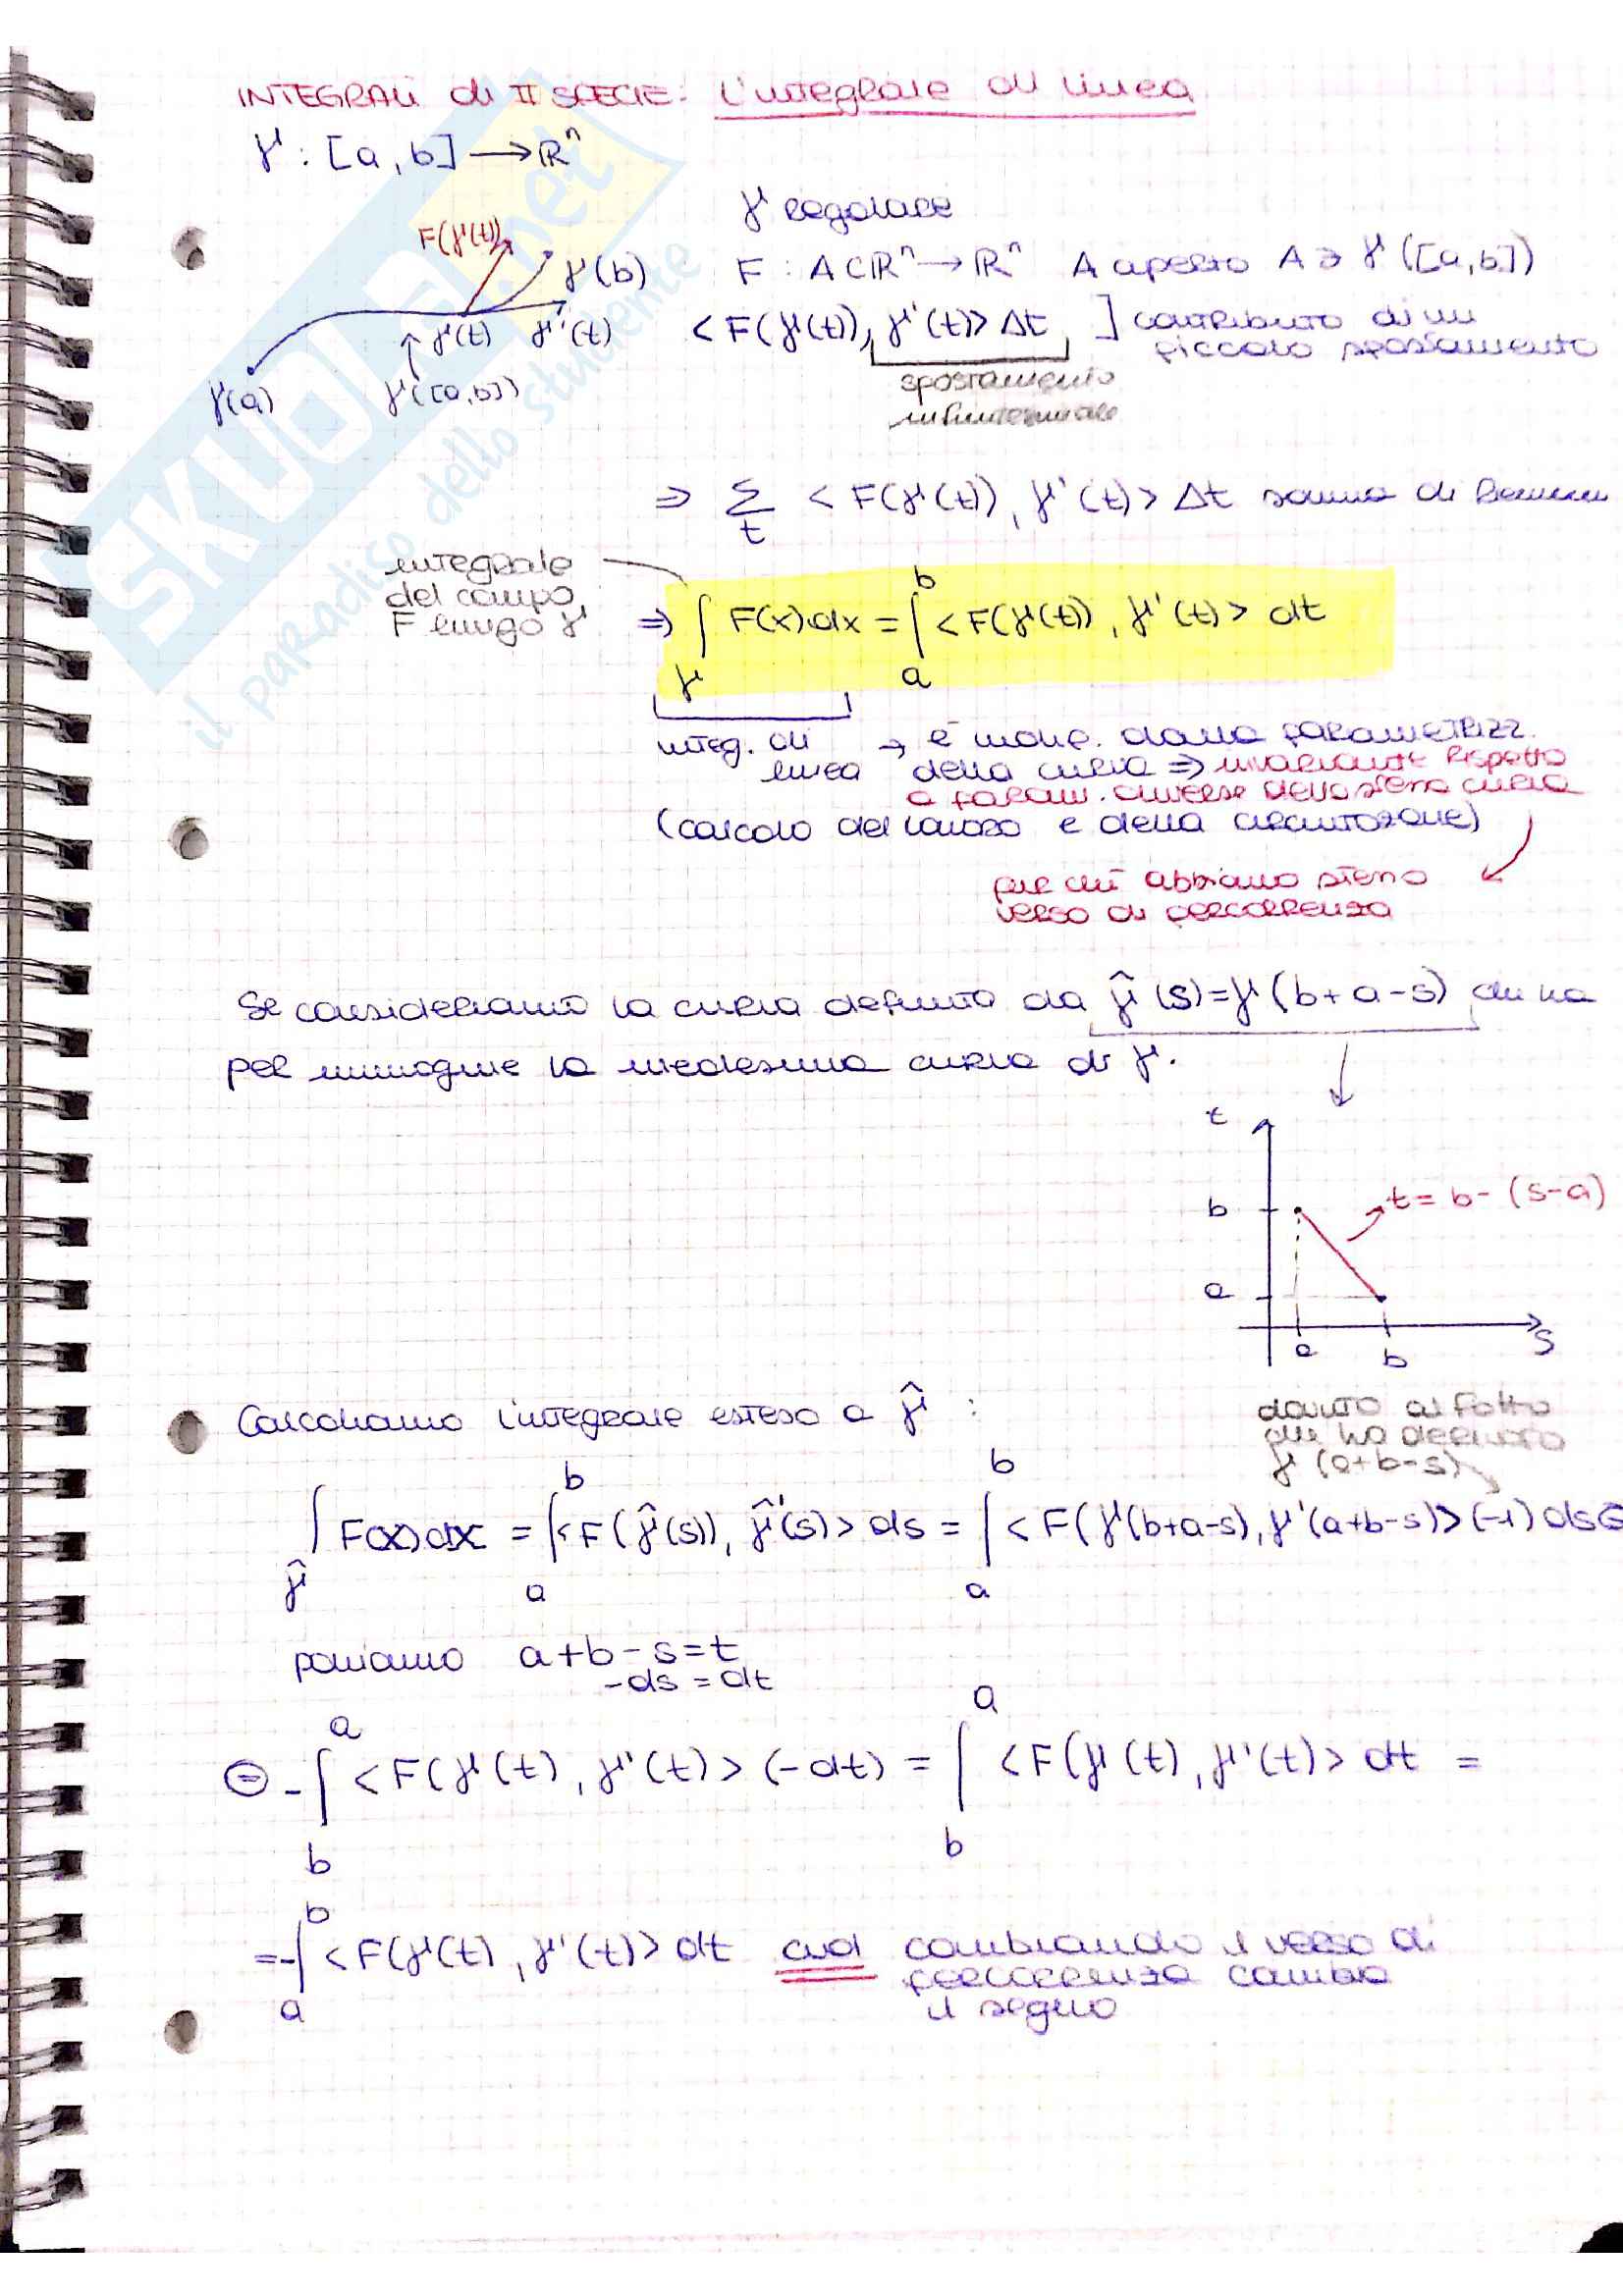 INTEGRALI di II SPECIE: L'integrale di linea
γ : [a,b] → ℝⁿ
γ regolare
F(γ(t))
γ(b)
F : A⊂ℝⁿ → ℝⁿ A aperto A ⊃ γ([a,b])
γ(t) γ'(t)
<F(γ(t)), γ'(t)> Δt ] contributo di un
piccolo spostamento
γ(a) γ([a,b])
spostamento
infinitesimale
⇒ Σ <F(γ(t)), γ'(t)> Δt somma di Riemann
t
integrale
del campo
F lungo γ
⇒ ∫_γ F(x)·dx = ∫_a^b <F(γ(t)), γ'(t)> dt
integ. di linea → è indip. dalla parametrizz.
della curva ⇒ invariante rispetto
a param. diverse della stessa curva
(calcolo del lavoro e della circuitazione)
purché abbiano stesso
verso di percorrenza
Se consideriamo la curva definita da γ̂(s)=γ(b+a-s) che ha
per immagine la medesima curva di γ.
t
b
t= b-(s-a)
a
a b s
Calcoliamo l'integrale esteso a γ̂ :
dovuto al fatto
che ho derivato
γ(a+b-s)
∫_γ̂ F(x)·dx = ∫_a^b <F(γ̂(s)), γ̂'(s)> ds = ∫_a^b <F(γ(b+a-s), γ'(a+b-s)>(-1) ds ⊜
poniamo a+b-s=t
-ds=dt
⊜ -∫_b^a <F(γ(t), γ'(t)> (-dt) = ∫_b^a <F(γ(t), γ'(t)> dt =
=-∫_a^b <F(γ(t), γ'(t)> dt cvd cambiando il verso di
percorrenza cambia
il segno
SKUOLA.net
il paradiso dello studente